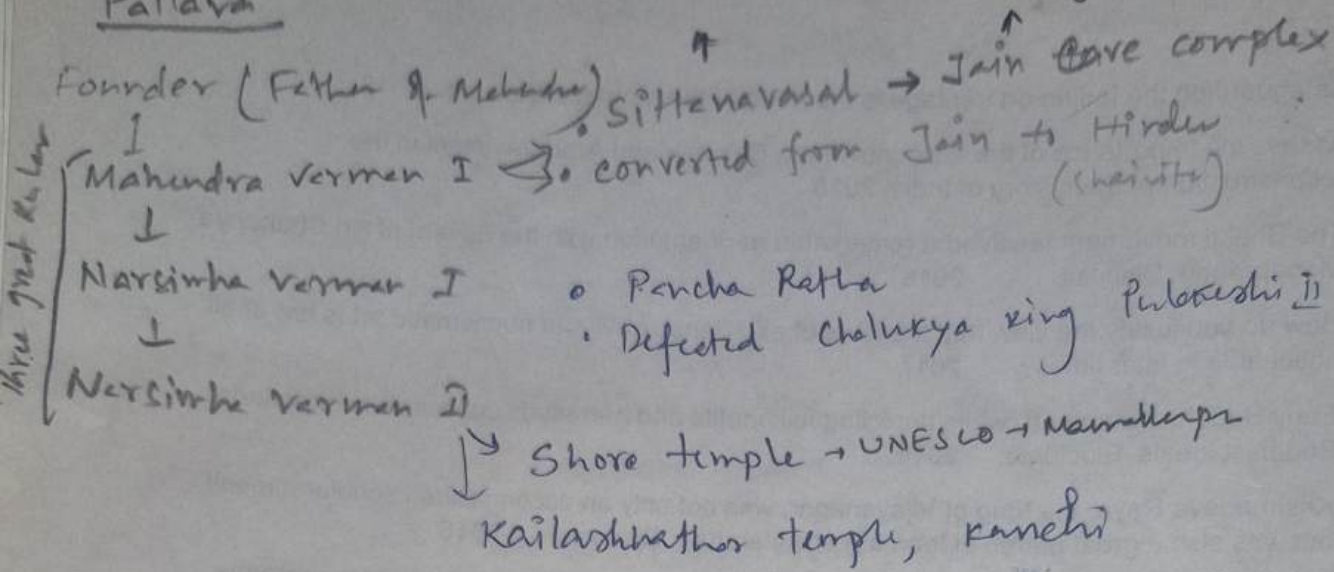 Pallava
Founder (Father of Mahendra)
• Sittanavasal → Jain Cave complex
Three great Rulers
Mahendra verman I → • converted from Jain to Hindu
(Shaivite)
Narsimha verman I • Pancha Ratha
• Defeated Chalukya king Pulakeshi II
Narsimha verman II
Shore temple → UNESCO → Mamallapur
Kailashnathar temple, kanchi